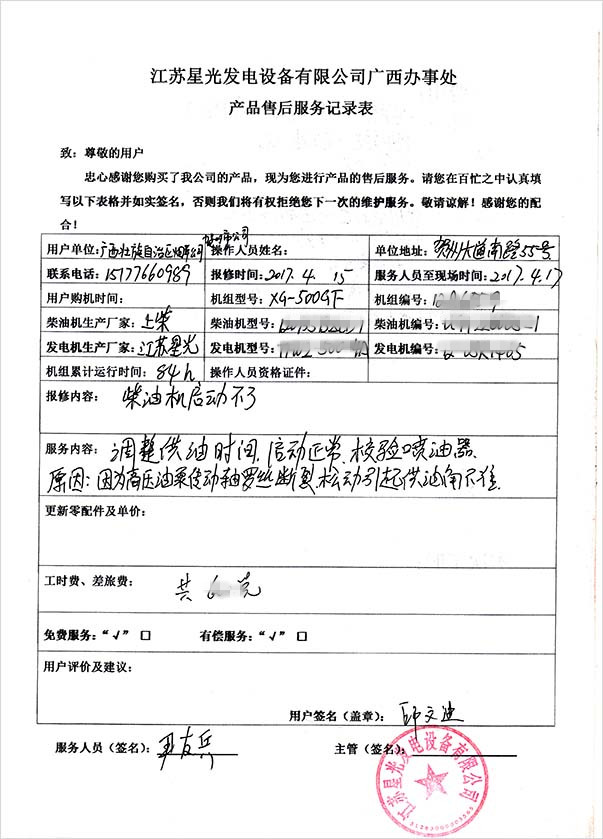 江苏星光发电设备有限公司广西办事处
产品售后服务记录表
致：尊敬的用户
忠心感谢您购买了我公司的产品，现为您进行产品的售后服务。请您在百忙之中认真填
写以下表格并如实签名，否则我们将有权拒绝您下一次的维护服务。敬请谅解！感谢您的配
合！
用户单位：广西壮族自治区 公司 操作人员姓名： 单位地址：贺州大道南路55号
联系电话：15177660989 报修时间：2017.4.15 服务人员至现场时间：2017.4.17
用户购机时间： 机组型号：XG-500GF 机组编号：
柴油机生产厂家：上柴 柴油机型号： 柴油机编号：
发电机生产厂家：江苏星光 发电机型号： 发电机编号：
机组累计运行时间：84h 操作人员资格证件：
报修内容：柴油机启动不了
服务内容：调整供油时间，启动正常，校验喷油器。
原因：因为高压油泵传动轴罗丝断裂，松动引起供油角不准。
更新零配件及单价：
工时费、差旅费： 共 元
免费服务：“√” □ 有偿服务：“√” □
用户评价及建议：
用户签名（盖章）：
服务人员（签名）： 友兵 主管（签名）：
江苏星光发电设备有限公司